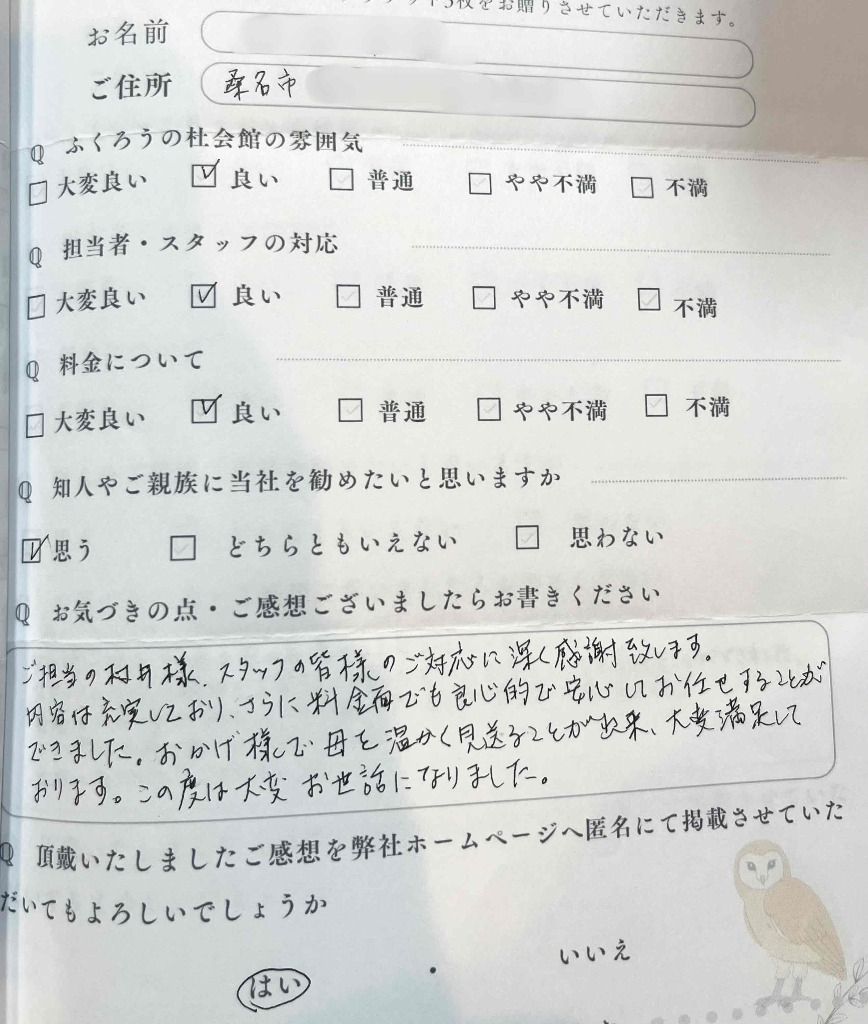 をお贈りさせていただきます。
お名前
ご住所 桑名市
Q ふくろうの杜会館の雰囲気
大変良い 良い 普通 やや不満 不満
Q 担当者・スタッフの対応
大変良い 良い 普通 やや不満 不満
Q 料金について
大変良い 良い 普通 やや不満 不満
Q 知人やご親族に当社を勧めたいと思いますか
思う どちらともいえない 思わない
Q お気づきの点・ご感想ございましたらお書きください
ご担当の村井様、スタッフの皆様のご対応に深く感謝致します。
内容は充実しており、さらに料金面でも良心的で安心してお任せすることが
できました。おかげ様で母を温かく見送ることが出来、大変満足して
おります。この度は大変お世話になりました。
Q 頂戴いたしましたご感想を弊社ホームページへ匿名にて掲載させていた
だいてもよろしいでしょうか
はい ・ いいえ